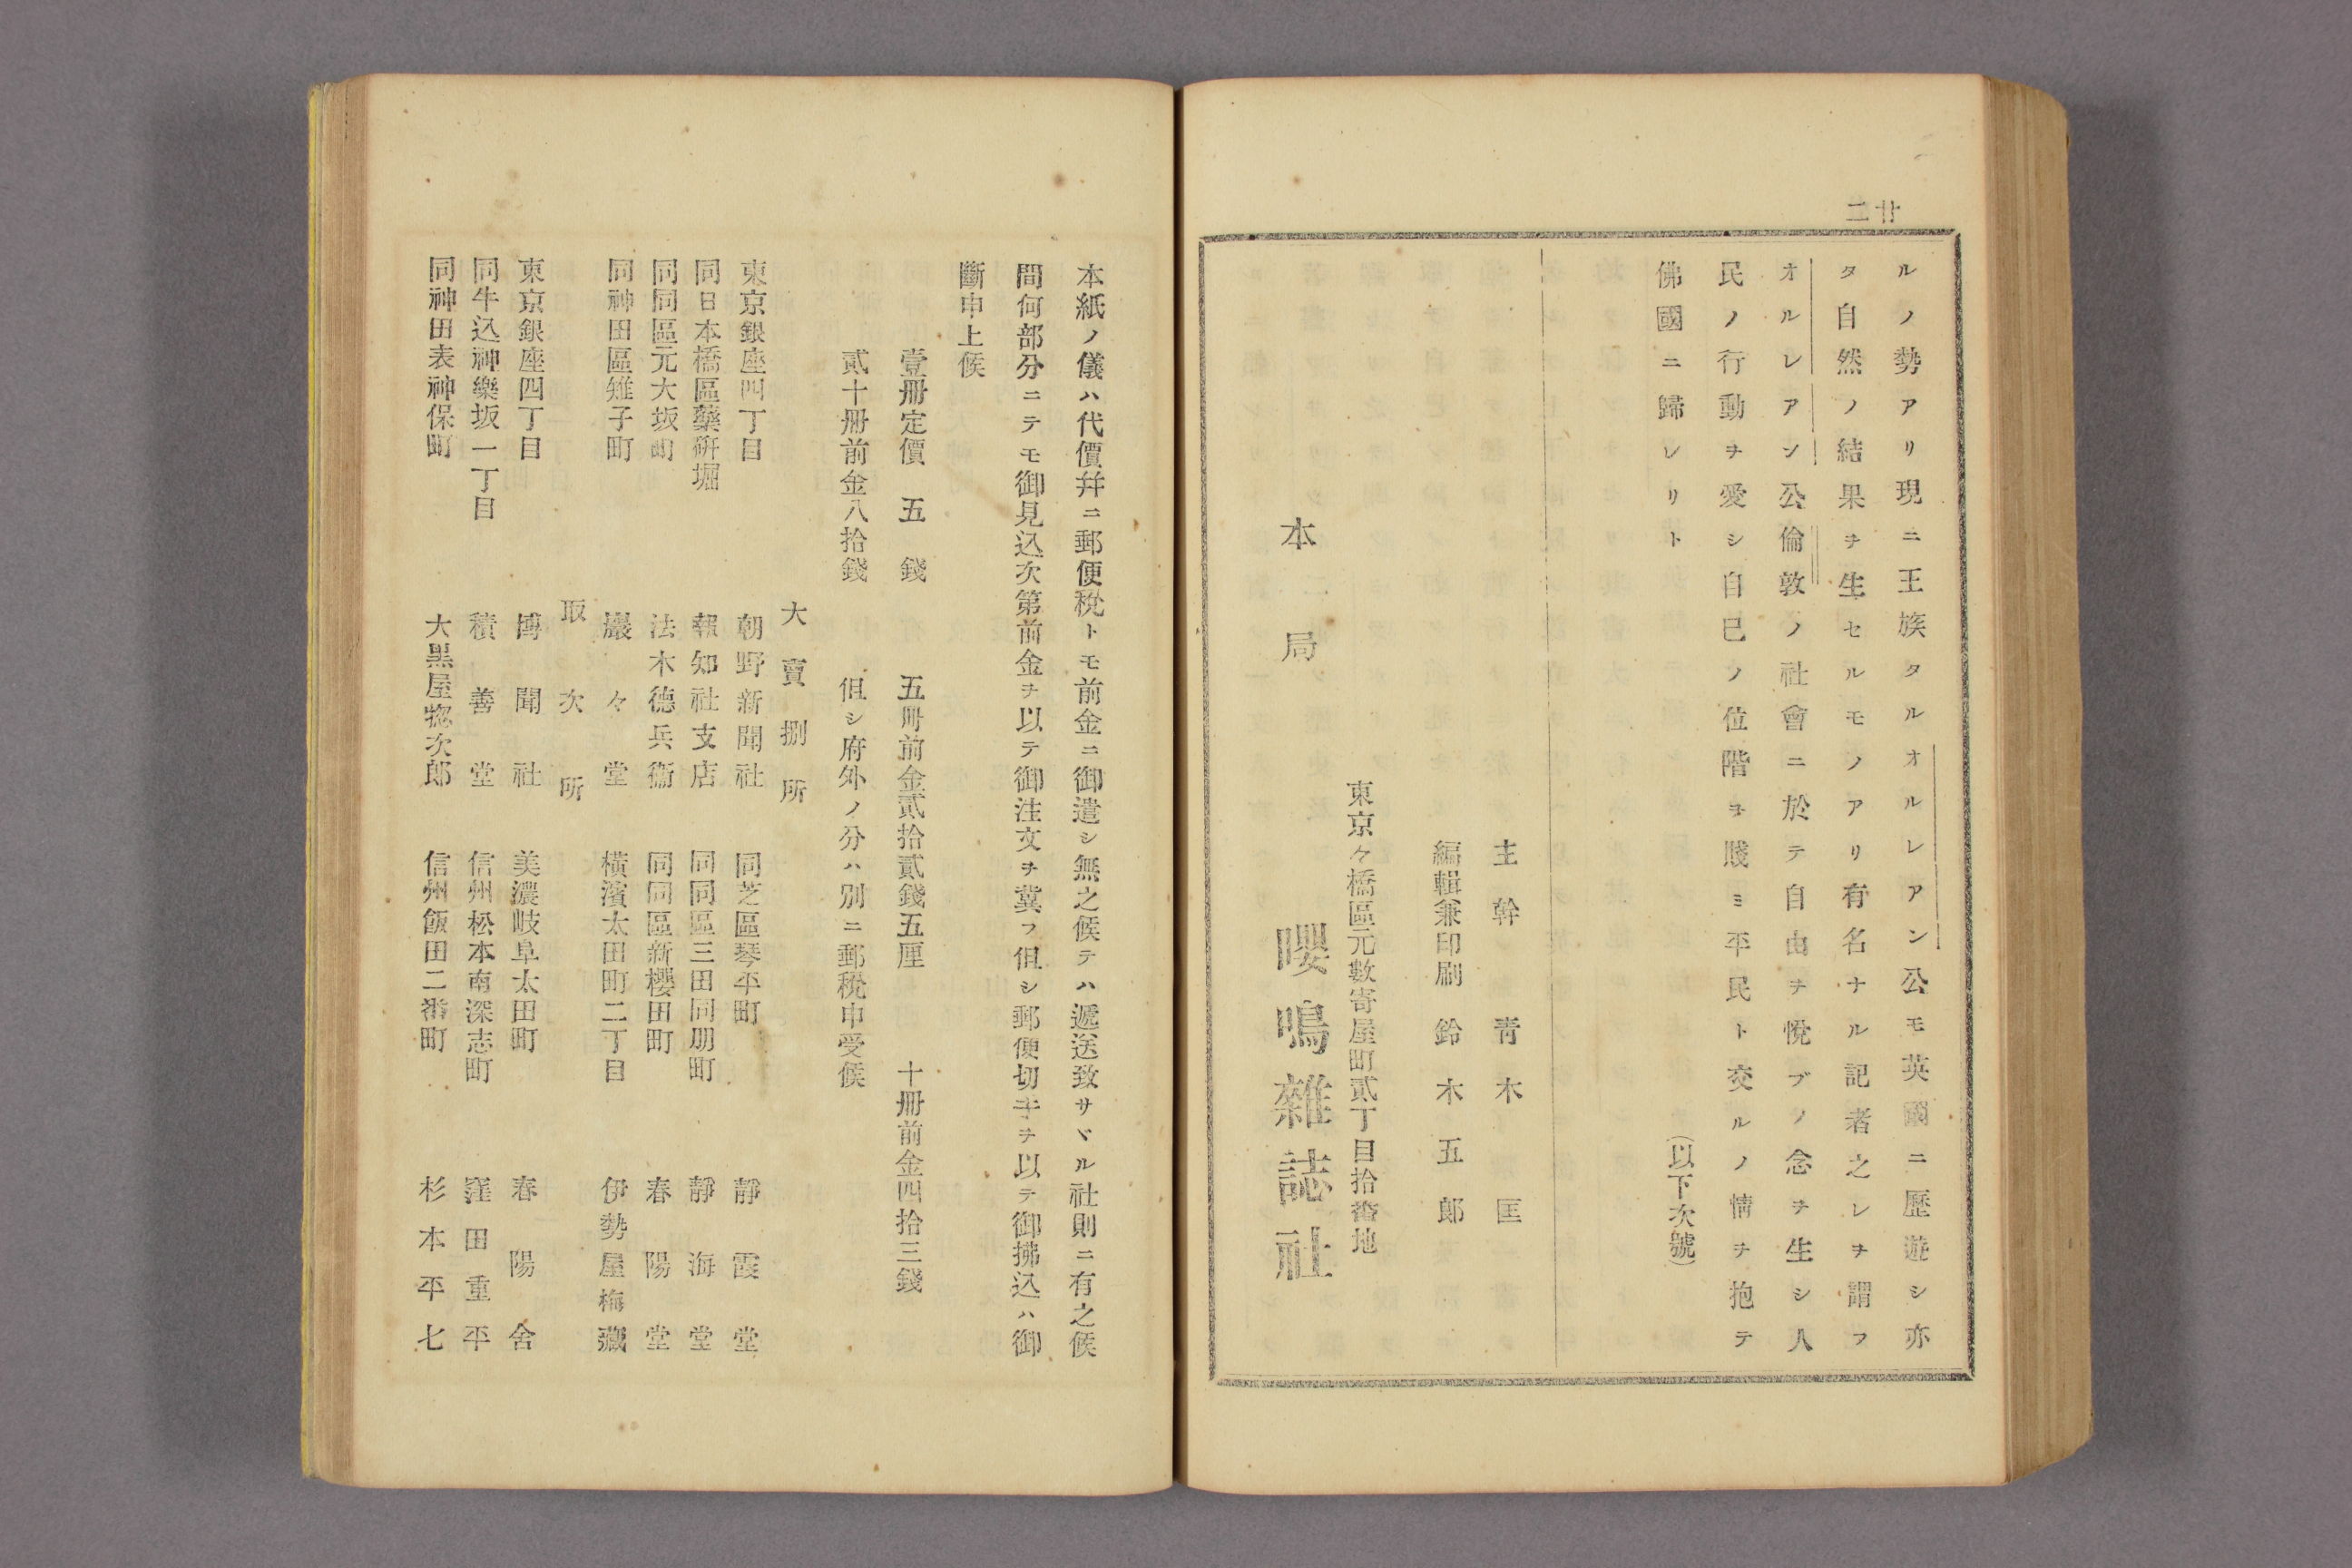 廿二
ルノ勢アリ現ニ王族タルオルレアン公モ英國ニ歷遊シ亦
タ自然ノ結果ヲ生セルモノアリ有名ナル記者之レヲ謂フ
オルレアン公倫敦ノ社會ニ於テ自由ヲ悅ブノ念ヲ生シ人
民ノ行動ヲ愛シ自己ノ位階ヲ賤ミ平民ト交ルノ情ヲ抱テ
佛國ニ歸レリト
(以下次號)
主幹 靑木匡
編輯兼印刷 鈴木五郎
東京々橋區元數寄屋町貳丁目拾番地
本局 嚶鳴雜誌社
本紙ノ儀ハ代價幷ニ郵便稅トモ前金ニ御遣シ無之候テハ遞送致サヾル社則ニ有之候
間何部分ニテモ御見込次第前金ヲ以テ御注文ヲ冀フ但シ郵便切手ヲ以テ御拂込ハ御
斷申上候
壹册定價 五錢 五册前金貳拾貳錢五厘 十册前金四拾三錢
貳十册前金八拾錢 但シ府外ノ分ハ別ニ郵稅申受候
大賣捌所
東京銀座四丁目 朝野新聞社 同芝區琴平町 靜霞堂
同日本橋區藥硏堀 報知社支店 同同區三田同朋町 靜海堂
同同區元大坂町 法木德兵衞 同同區新櫻田町 春陽堂
同神田區雉子町 巖々堂 橫濱太田町二丁目 伊勢屋梅藏
取次所
東京銀座四丁目 博聞社 美濃岐阜太田町 春陽舍
同牛込神樂坂一丁目 積善堂 信州松本南深志町 窪田重平
同神田表神保町 大黑屋惣次郎 信州飯田二番町 杉本平七